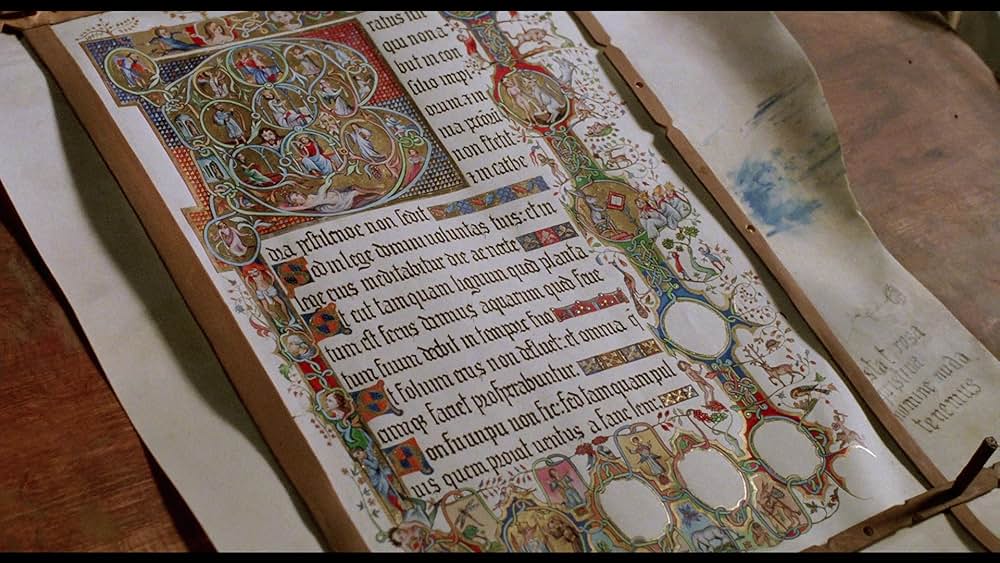 atus uir
qui non a
biit in con
silio impi
orum: et in
uia
non stetit
et in cathe
dra non sedit
ed in lege domini uoluntas eius: et in
lege eius meditabitur die ac nocte
t erit tamquam lignum quod planta
tum est secus aquarum quod
tum suum dabit in tempore suo
t folium eius non defluet: et omnia q
faciet prosperabuntur
on sic impii non sic: sed tamquam pul
uis quem proicit uentus a facie
Stat rosa
pristina
nomine nuda
tenemus